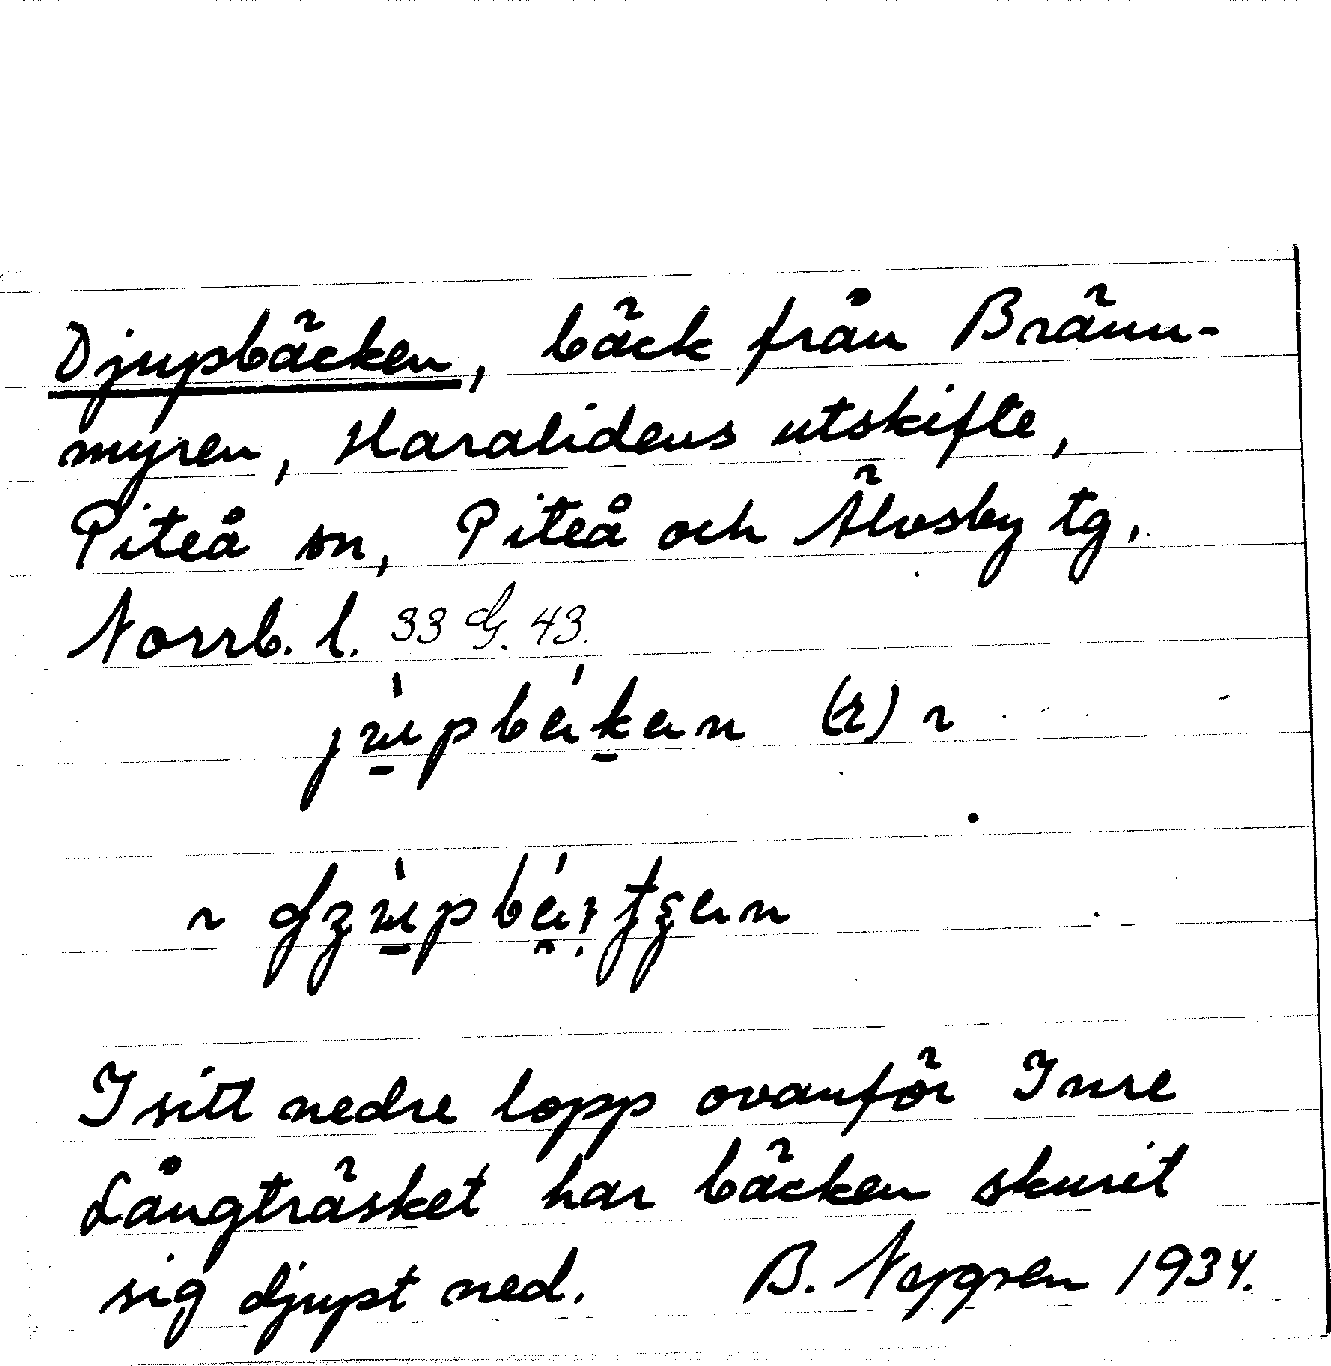 Djupbäcken, bäck från Bränn-
myren, Haralidens utskifte,
Piteå sn, Piteå och Älvsby tg,
Norrb. l. 33 G. 43.
I sitt nedre lopp ovanför Inre
Långträsket har bäcken skurit
sig djupt ned. B. Nygren 1934.